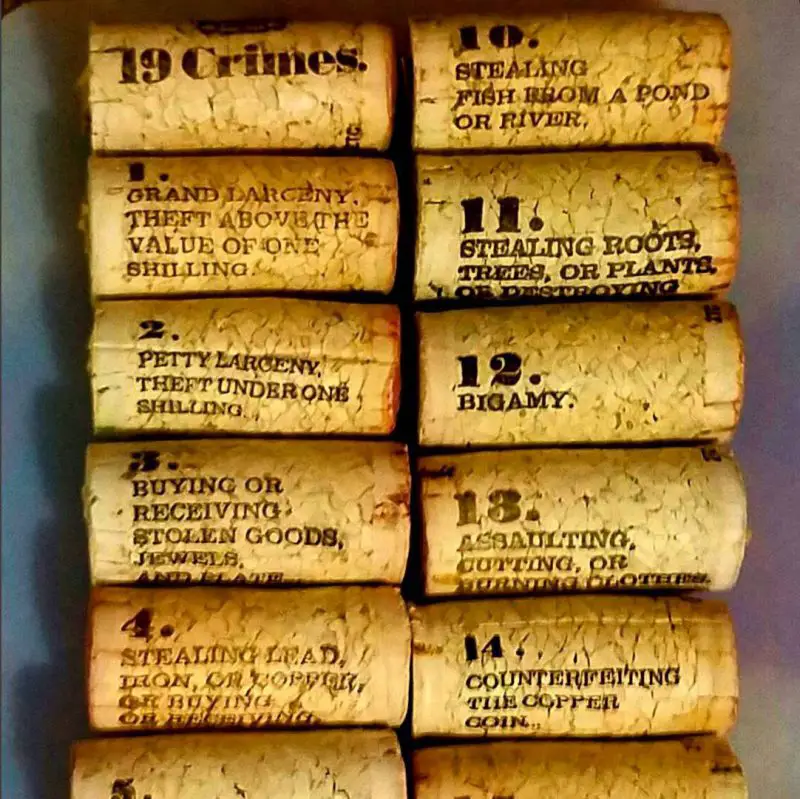 19 Crimes.
1.
GRAND LARCENY,
THEFT ABOVE THE
VALUE OF ONE
SHILLING.
2.
PETTY LARCENY,
THEFT UNDER ONE
SHILLING.
3.
BUYING OR
RECEIVING
STOLEN GOODS,
JEWELS,
AND PLATE...
4.
STEALING LEAD,
IRON, OR COPPER,
OR BUYING
OR RECEIVING.
5.
10.
STEALING
FISH FROM A POND
OR RIVER.
11.
STEALING ROOTS,
TREES, OR PLANTS,
OR DESTROYING
12.
BIGAMY.
13.
ASSAULTING,
CUTTING, OR
BURNING CLOTHES.
14.
COUNTERFEITING
THE COPPER
COIN...